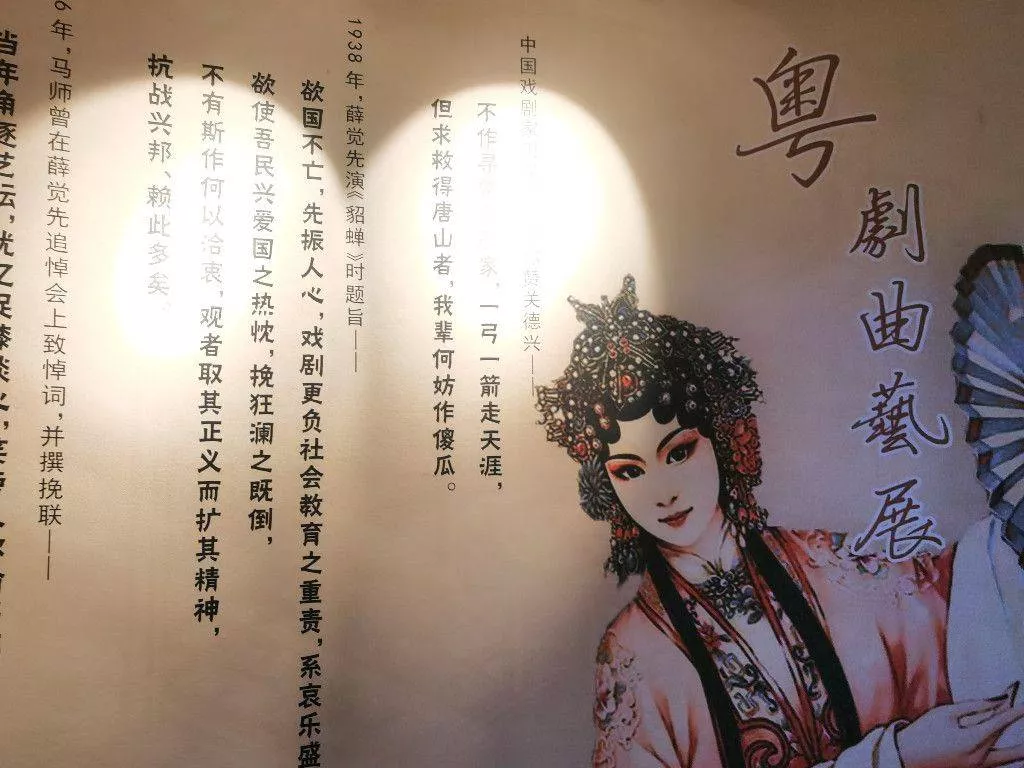 粤劇曲藝展
中国戏剧家 德兴——
不作寻 家,一弓一箭走天涯,
但求救得唐山者,我辈何妨作傻瓜。
1938年,薛觉先演《貂蝉》时题旨——
欲国不亡,先振人心,戏剧更负社会教育之重责,系哀乐盛
欲使吾民兴爱国之热忱,挽狂澜之既倒,
不有斯作何以洽衷,观者取其正义而扩其精神,
抗战兴邦、赖此多矣。
6年,马师曾在薛觉先追悼会上致悼词,并撰挽联——
当年角逐艺坛,犹之